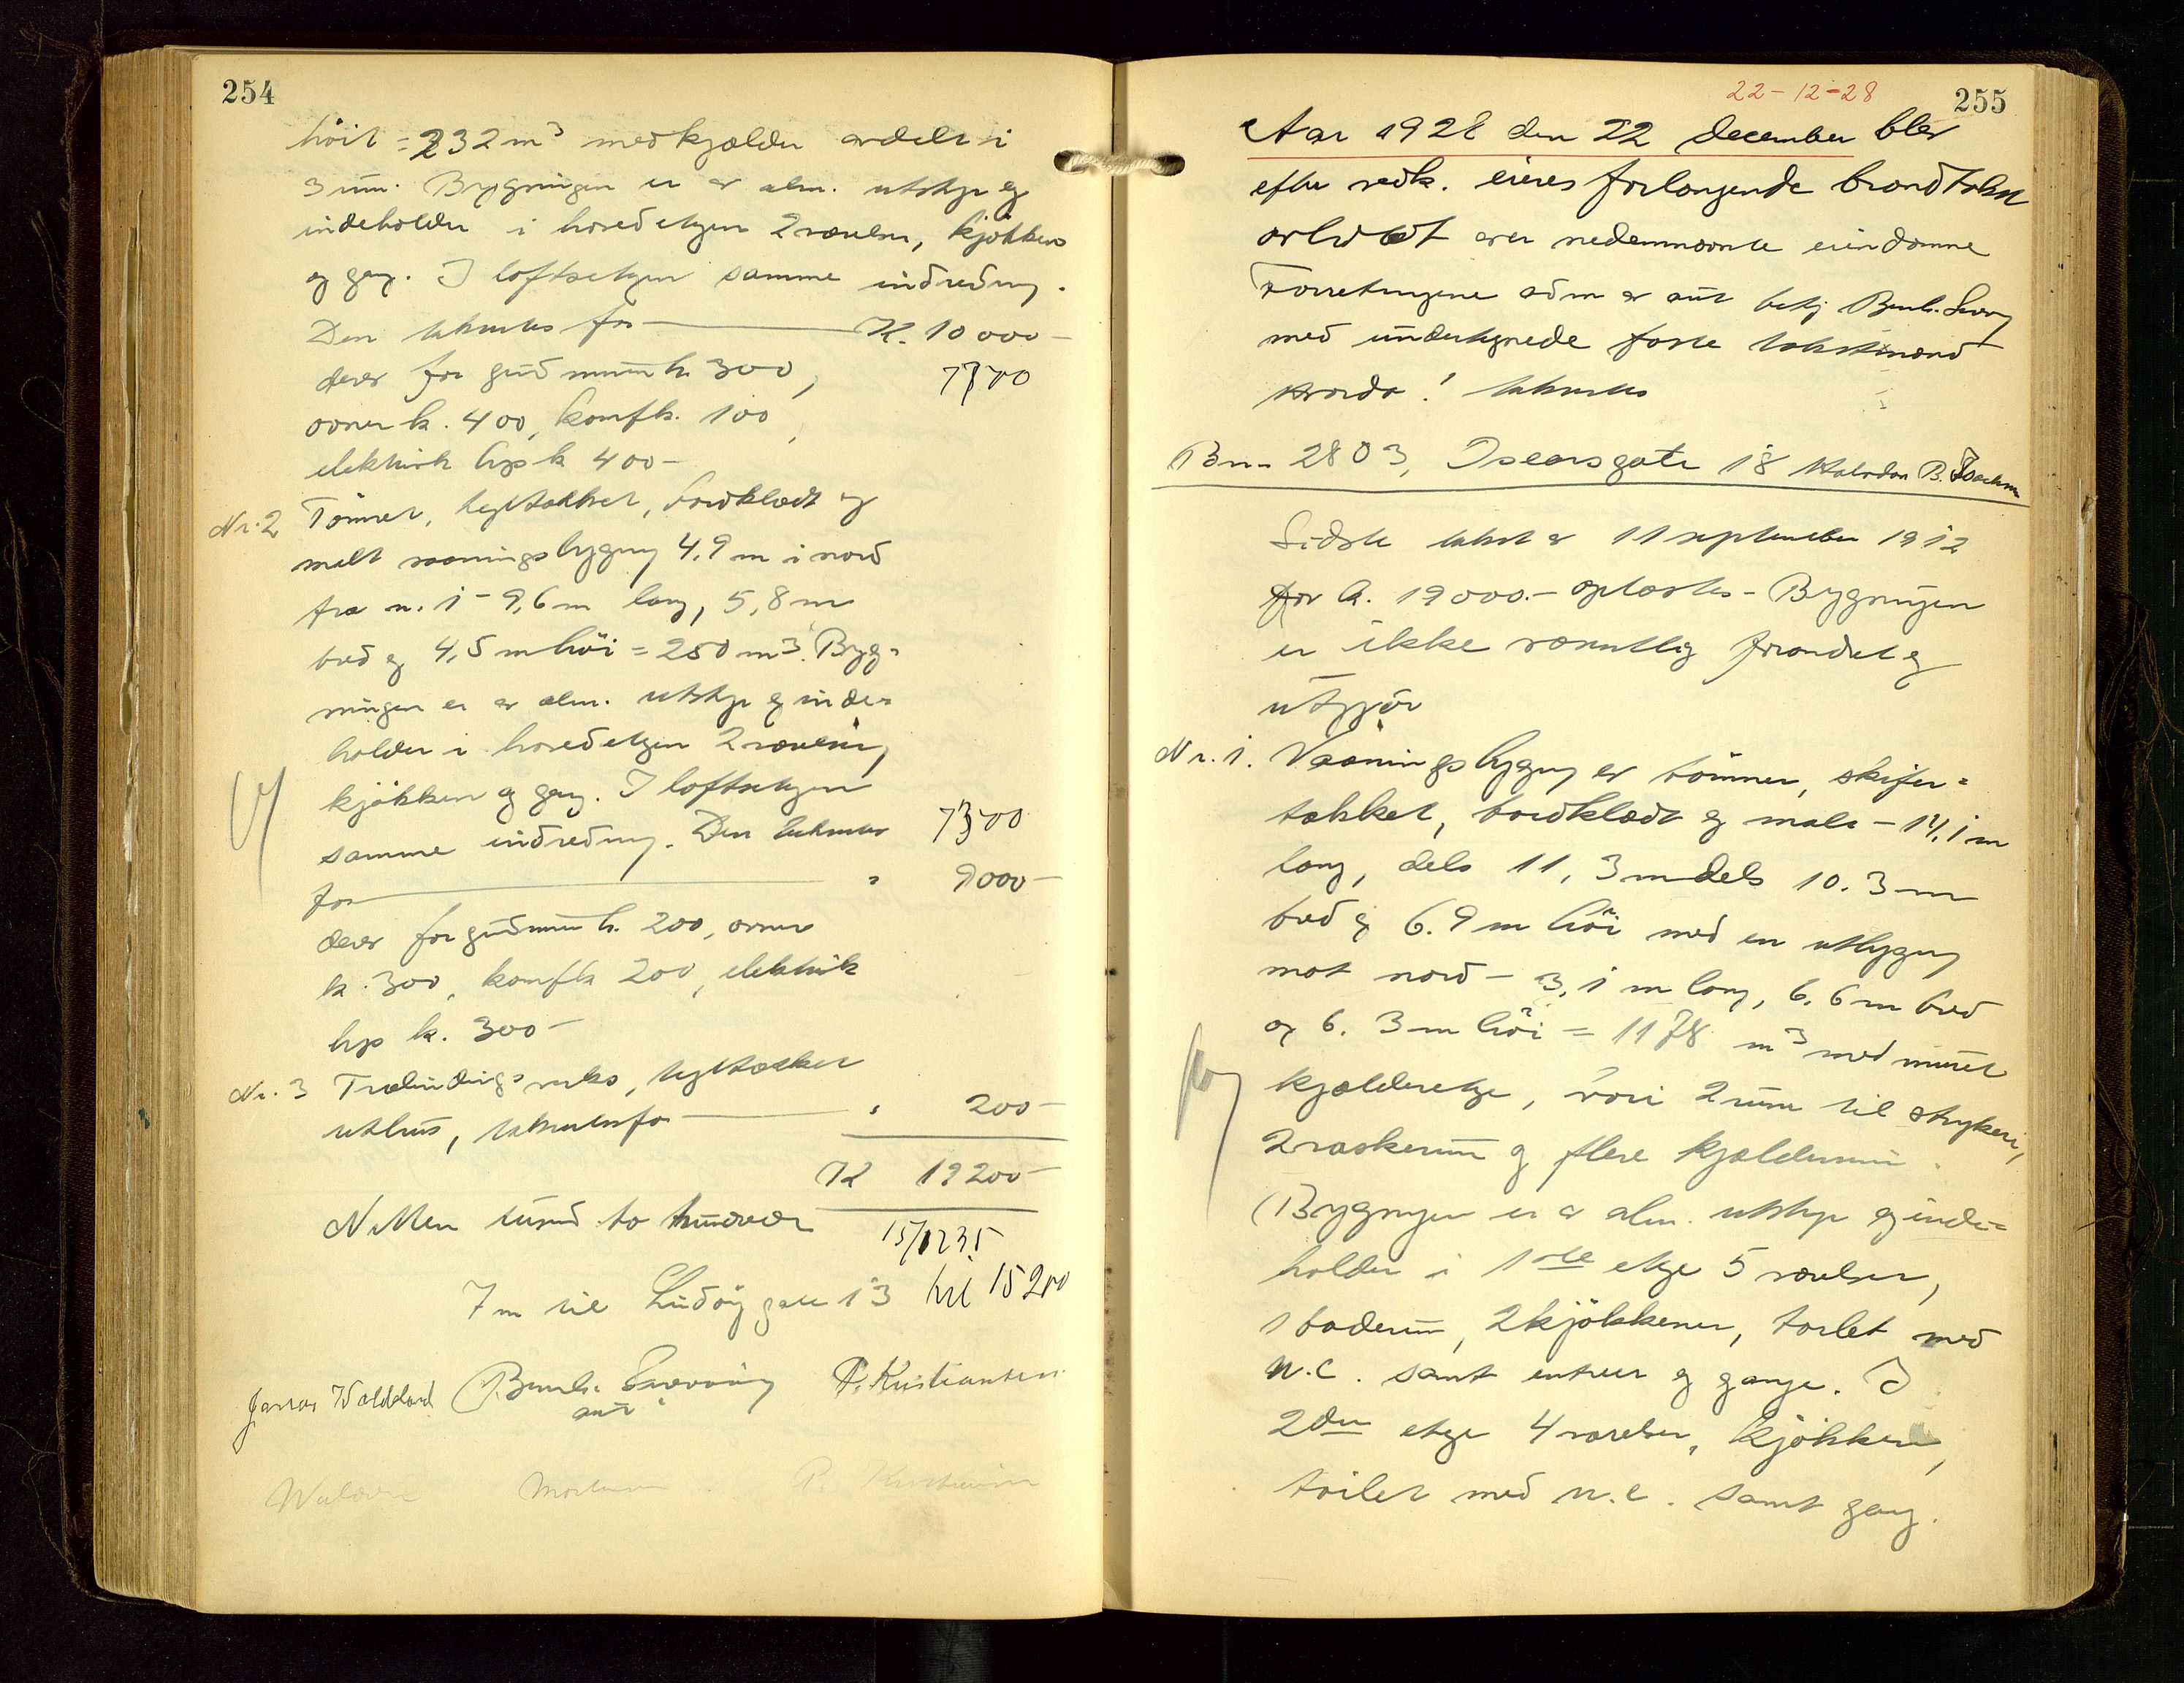 254
høit = 232 m³ med kjælder avdelt i
3 rum. Bygningen er av alm. utstyr og
indeholder i hovedetagen 2 værelser, kjøkken
og gang. I loftsetagen samme indredning.
Den takseres for K. 10 000 –
derav for grundmur k. 300,
ovner k. 400, komf k. 100,
elektrisk lys k 400 –
Nr. 2 Tømret, tegltækket, bordklædt og
malt vaaningsbygning 4,9 m i nord
fra n. 1 – 9,6 m lang, 5,8 m
bred og 4,5 m høi = 250 m³. Byg=
ningen er av alm. utstyr og inde=
holder i hovedetagen 2 værelser,
kjøkken og gang. I loftsetagen
samme indredning. Den takseres 7500
for " 9000 –
derav for grundmur k. 200, ovner
k. 300, komf k 200, elektrisk
lys k. 300 –
Nr. 3 Træbindingsverks, tegltækket
uthus, takseres for " 200 –
K 19200 –
Nitten tusind to hundrede
15/12 35.
7 m til Lindøy gate 13 15200
Jonas Vatland Bernh. Severeng P. Kristiansen
P. Kristiansen
22-12-28
255
Aar 1928 den 22 december blev
efter vedk. eieres forlangende brandtakst
avholdt over nedennævnte eiendomme
Forretningene adm av aut betj Bernh. Severeng
med undertegnede faste takstmænd
takseres
Bn. 2803, Iscarsgate 18 Halvdan B.
Sidste takst av 11 september 1912
for k. 19000.– oplæstes – Bygningen
er ikke væsentlig forandret og
utgjør
Nr. 1. Vaaningsbygning av tømmer, skifer=
tækket, bordklædt og malt – 14,1 m
lang, dels 11,3 m dels 10.3 m
bred og 6.9 m høi med en utbygning
mot nord – 3,1 m lang, 6.6 m bred
og 6.3 m høi = 1178 m³ med muret
kjælderetage, hvori 2 rum til strykeri,
2 vaskerum og flere kjælderrum.
Bygningen er av alm. utstyr og inde=
holder i 1ste etage 5 værelser,
1 baderum, 2 kjøkkener, toilet med
w.c. samt entreer og gange. I
2den etage 4 værelser, kjøkken,
toilet med w.c. samt gang.